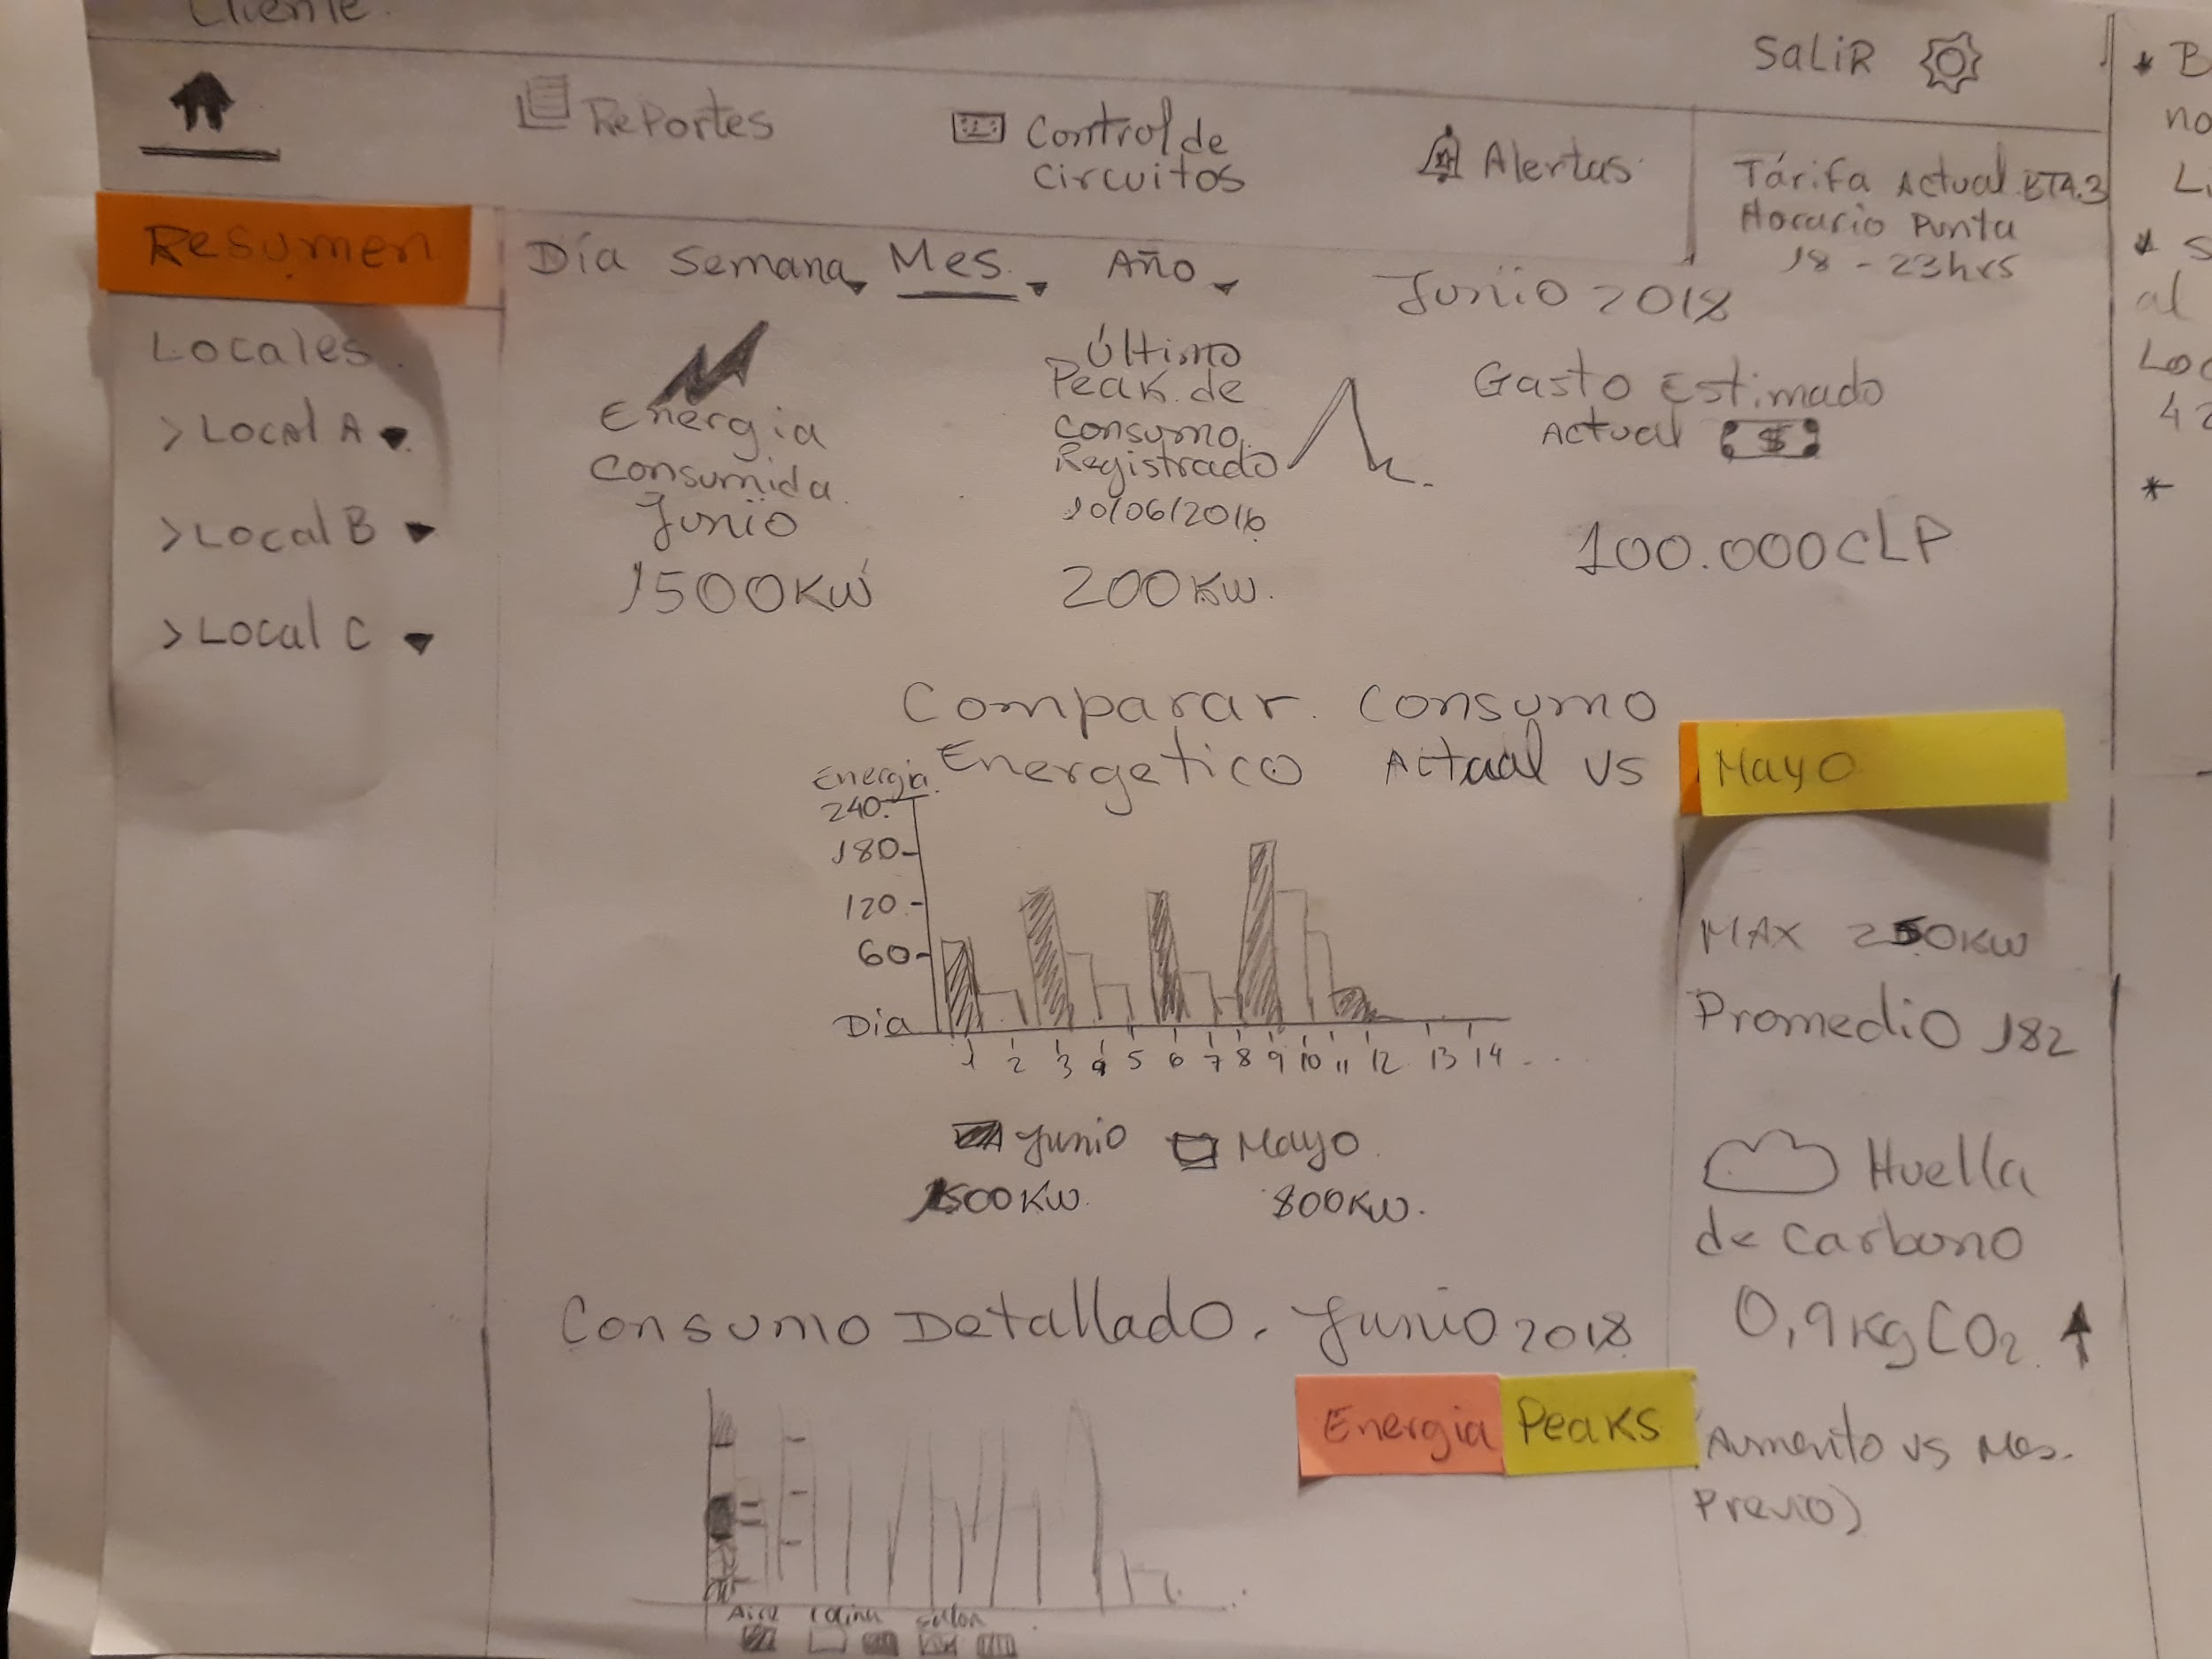 Cliente
SALiR
Reportes
Control de
circuitos
Alertas
Tárifa Actual BT4.3
Horario Punta
18 - 23hrs
Resumen
Día Semana Mes Año
Junio 2018
Locales
> Local A
> Local B
> Local C
Energia
Consumida
Junio
1500KW
Último
Peak de
consumo
Registrado
10/06/2018
200KW.
Gasto Estimado
Actual $
100.000CLP
Comparar consumo
Energetico Actual vs Mayo
Energia
240
180
120
60
Dia
1 2 3 4 5 6 7 8 9 10 11 12 13 14 ...
Junio Mayo
1500KW. 800KW.
MAX 250KW
Promedio 182
Huella
de Carbono
0,9KgCO2
(Aumento vs Mes
Previo)
Consumo Detallado. Junio 2018
Energia Peaks
Aire Cocina Salon
* B
no
Li
* S
al
Loc
42
*